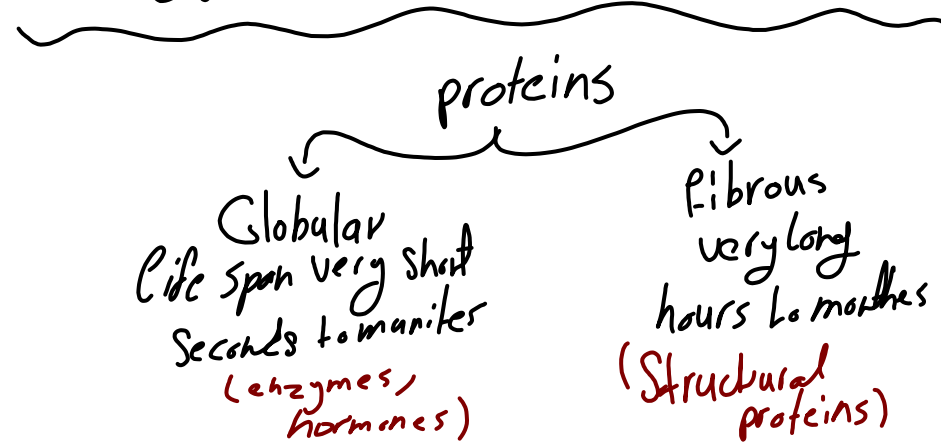 proteins
Globular
life span very short
seconds to maniter
(enzymes,
hormones)
fibrous
very long
hours to monthes
(Structural
proteins)